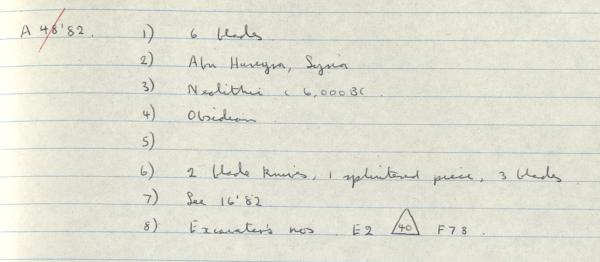 A 48'82. 1) 6 blades
2) Abu Hureyra, Syria
3) Neolithic c 6,000 BC.
4) Obsidian
5)
6) 2 blade knives, 1 splintered piece, 3 blades
7) See 16'82
8) Excavator's nos E2 40 F78.